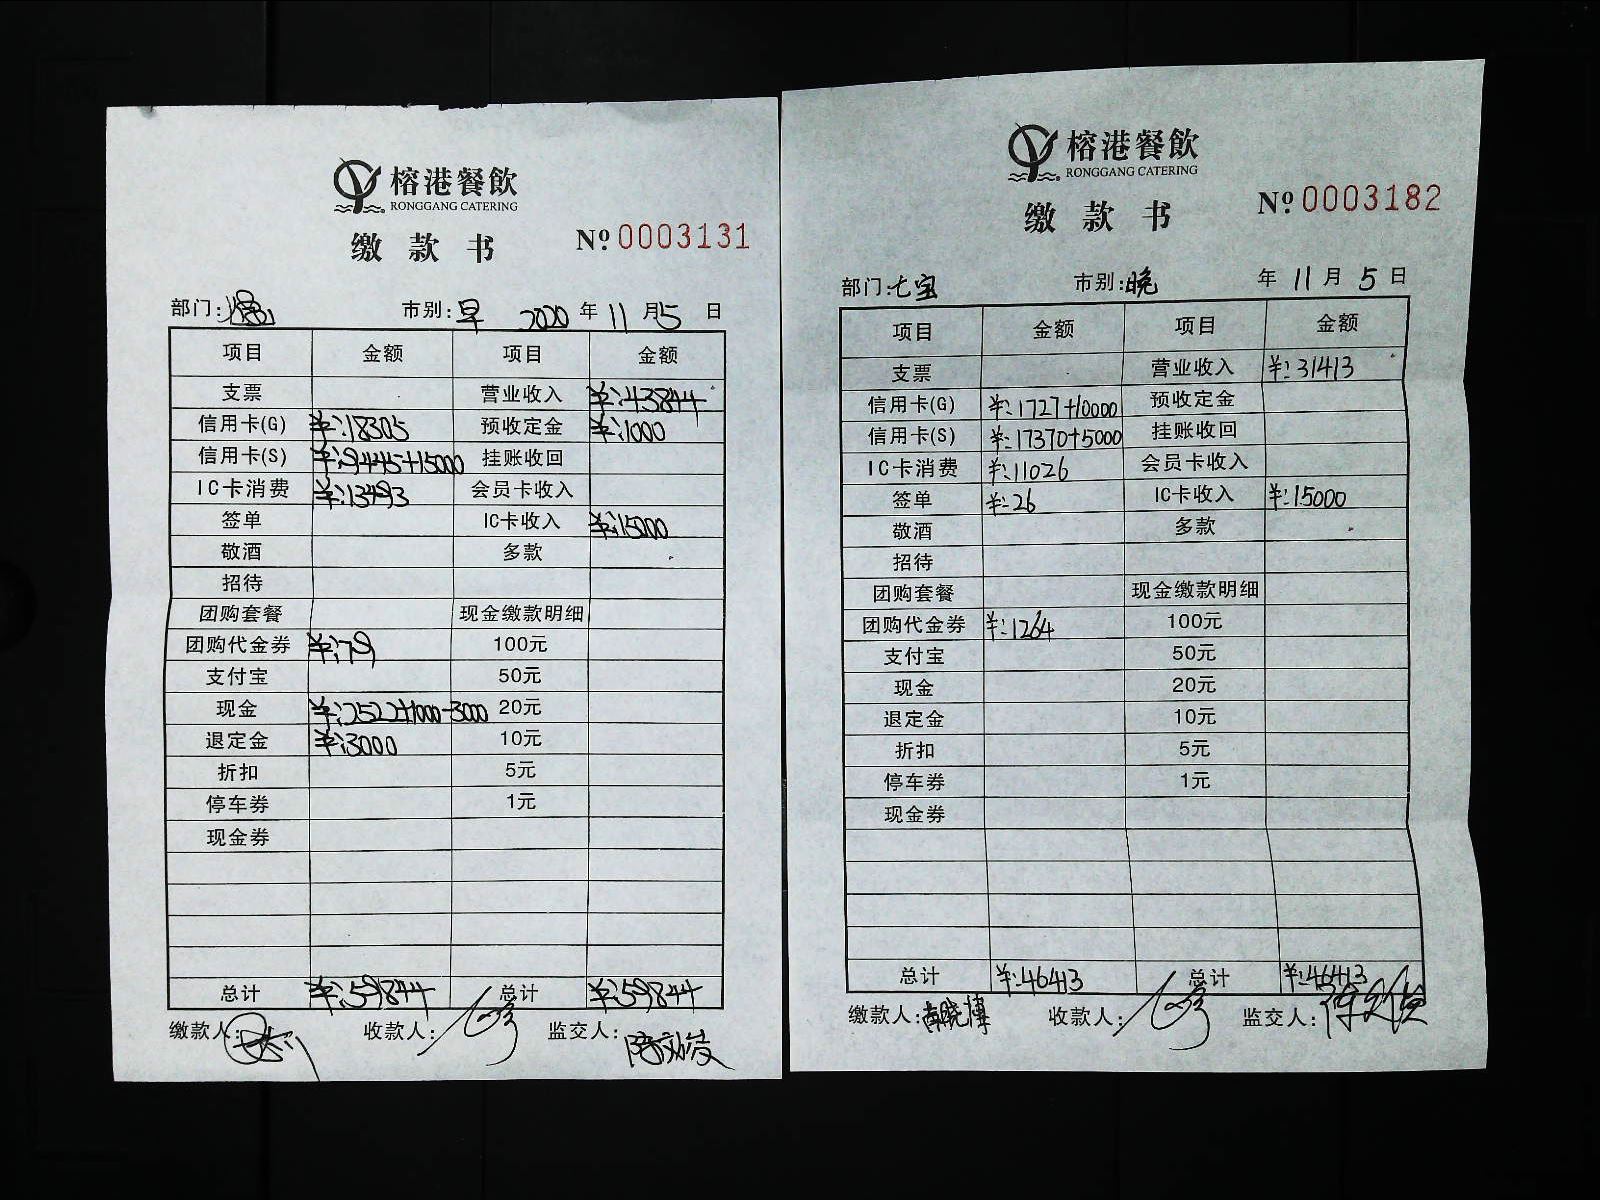 榕港餐飲
RONGGANG CATERING
缴款书
№ 0003131
部门: 市别:早 2020年11月5日
项目 金额 项目 金额
支票 营业收入 ¥:43844
信用卡(G) ¥:18305 预收定金 ¥:1000
信用卡(S) ¥:9445+15000 挂账收回
IC卡消费 ¥:13493 会员卡收入
签单 IC卡收入 ¥:15000
敬酒 多款
招待
团购套餐 现金缴款明细
团购代金券 ¥:79 100元
支付宝 50元
现金 ¥:2522+1000-3000 20元
退定金 ¥:3000 10元
折扣 5元
停车券 1元
现金券
总计 ¥:59844 总计 ¥:59844
缴款人: 收款人: 监交人:
榕港餐飲
RONGGANG CATERING
缴款书
№ 0003182
部门:七宝 市别:晚 年11月5日
项目 金额 项目 金额
支票 营业收入 ¥:31413
信用卡(G) ¥:1727+10000 预收定金
信用卡(S) ¥:17370+5000 挂账收回
IC卡消费 ¥:11026 会员卡收入
签单 ¥:26 IC卡收入 ¥:15000
敬酒 多款
招待
团购套餐 现金缴款明细
团购代金券 ¥:1264 100元
支付宝 50元
现金 20元
退定金 10元
折扣 5元
停车券 1元
现金券
总计 ¥:46413 总计 ¥:46413
缴款人: 收款人: 监交人: